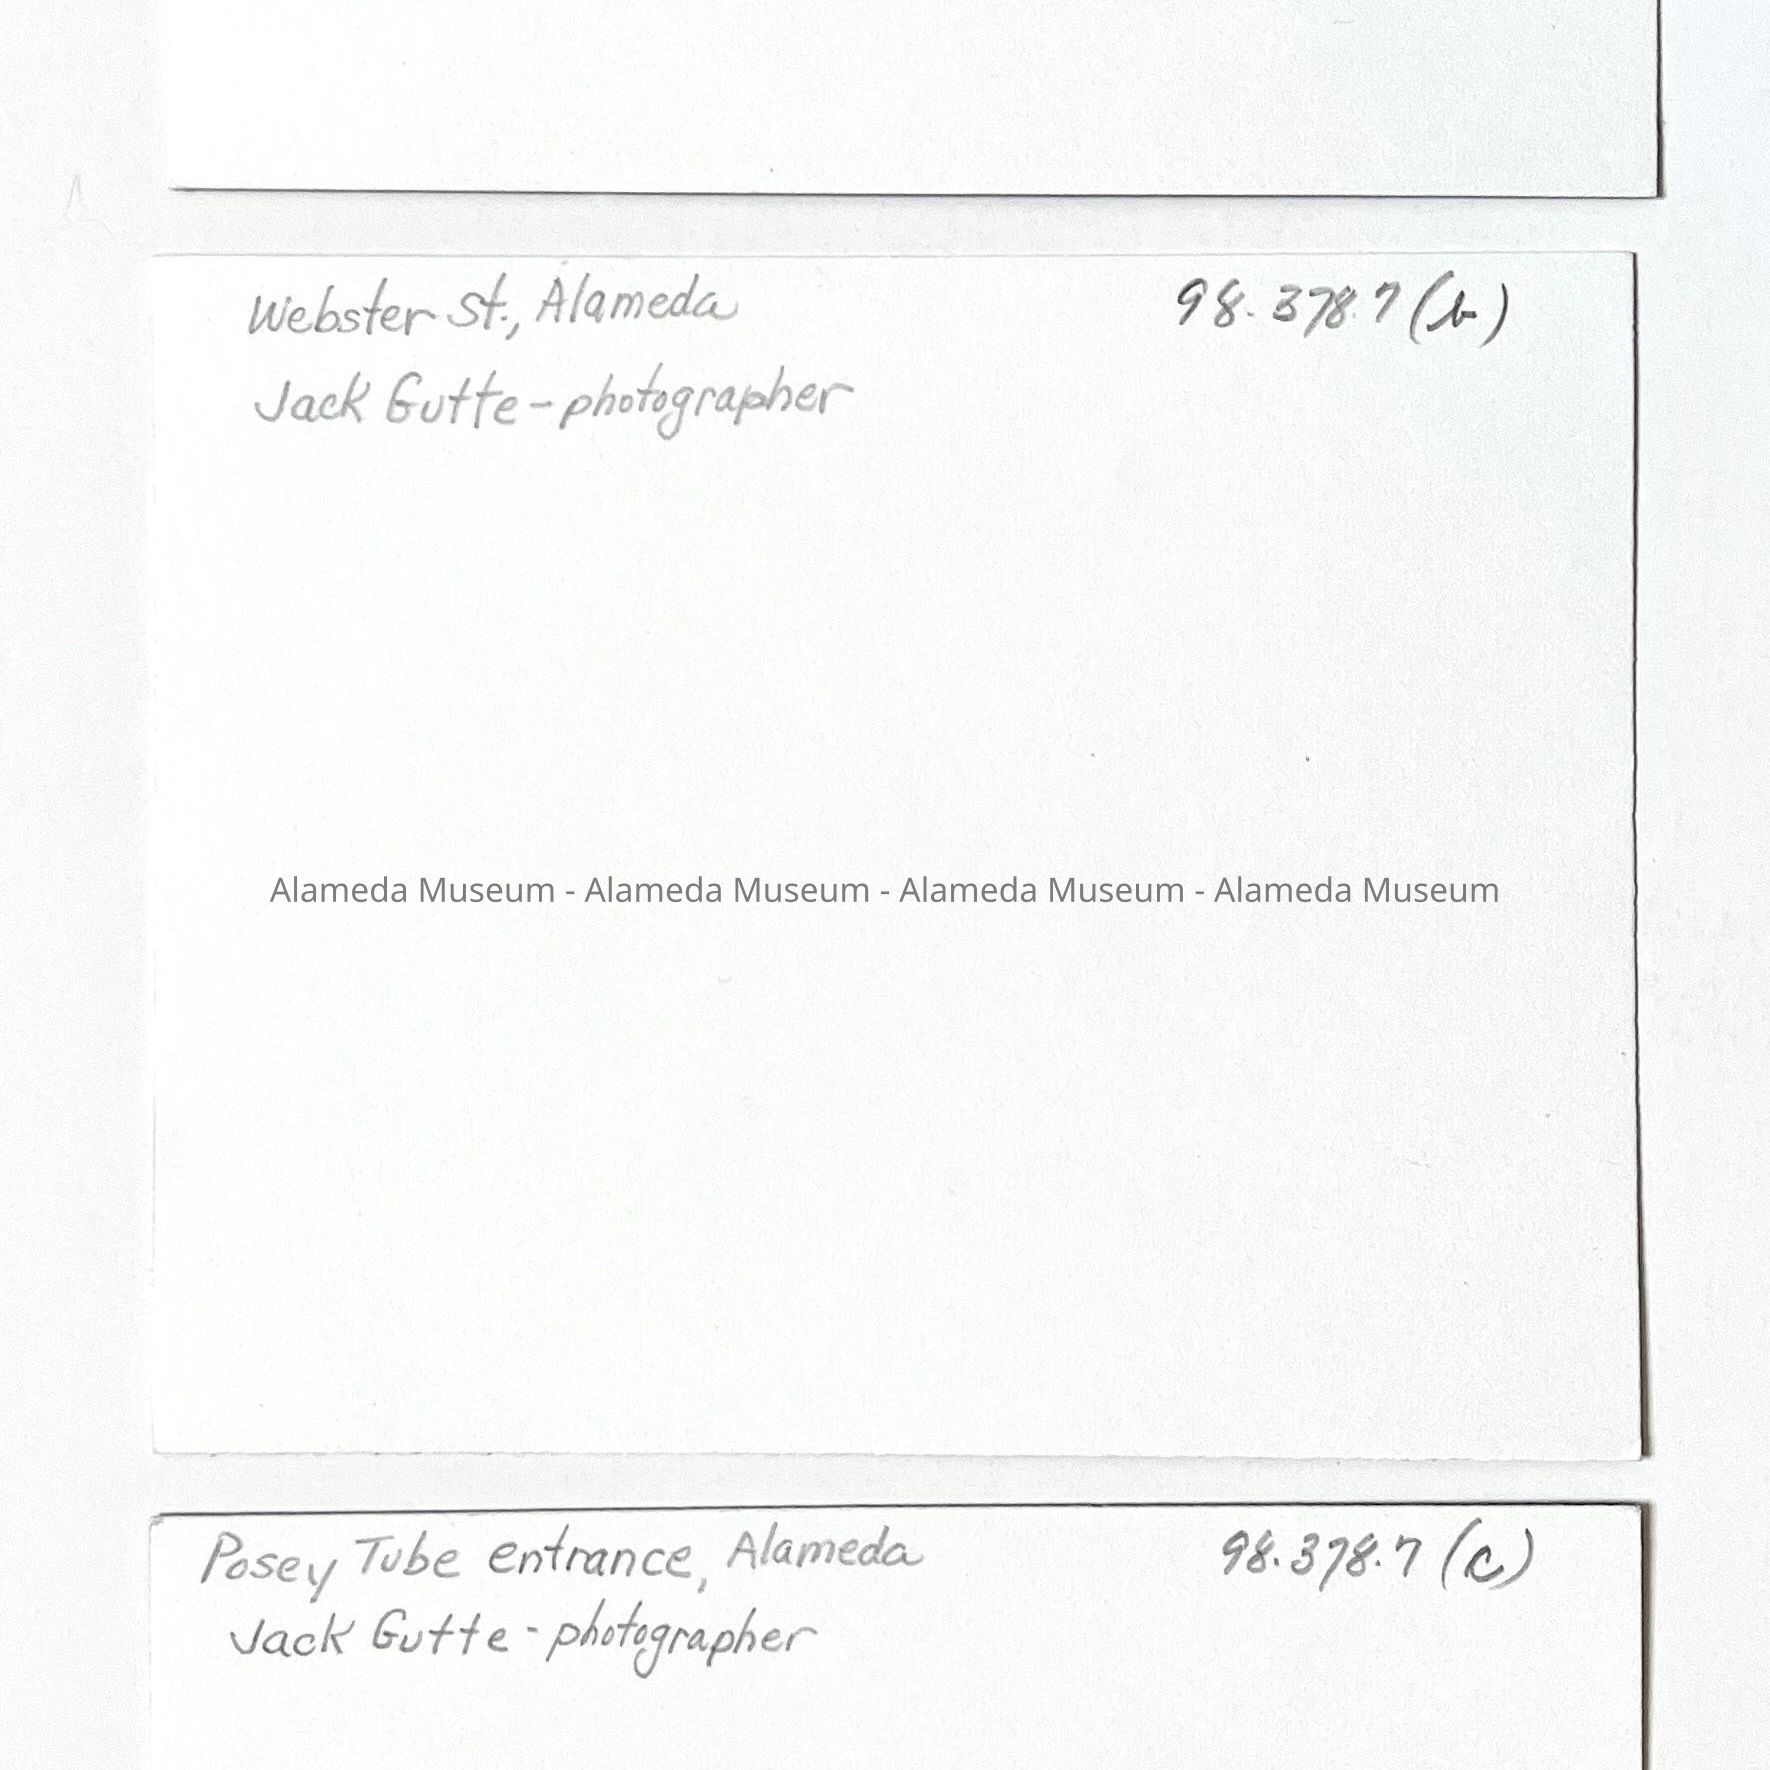 Webster St., Alameda 98.378.7 (b)
Jack Gutte - photographer
Alameda Museum - Alameda Museum - Alameda Museum - Alameda Museum
Posey Tube entrance, Alameda 98.378.7 (c)
Jack Gutte - photographer